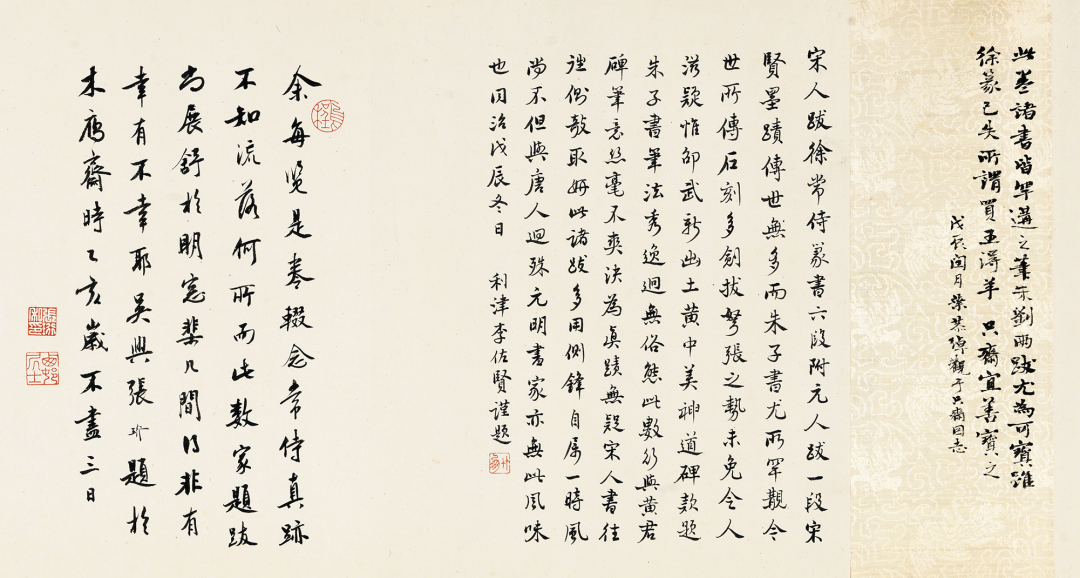 此卷諸書皆罕遘之筆朱劉兩跋尤為可寶雖
徐篆已失所謂買王得羊 只齋宜善寶之
戊辰閏月葉恭綽觀于只齋因志
宋人跋徐常侍篆書六段附元人跋一段宋
賢墨蹟傳世無多而朱子書尤所罕覯今
世所傳石刻多劍拔弩張之勢未免令人
滋疑惟邵武新出土黃中美神道碑款題
朱子書筆法秀逸迥無俗態此數行與黃君
碑筆意絲毫不爽決為真蹟無疑宋人書往
往側敧取妍此諸跋多用側鋒自屬一時風
尚不但與唐人迥殊元明書家亦無此風味
也同治戊辰冬日 利津李佐賢謹題
余每覽是卷輟念常侍真跡
不知流落何所而此數家題跋
尚展舒於明窓棐几間得非有
幸有不幸耶吳興張珩題於
木雁齋時乙亥歲不盡三日